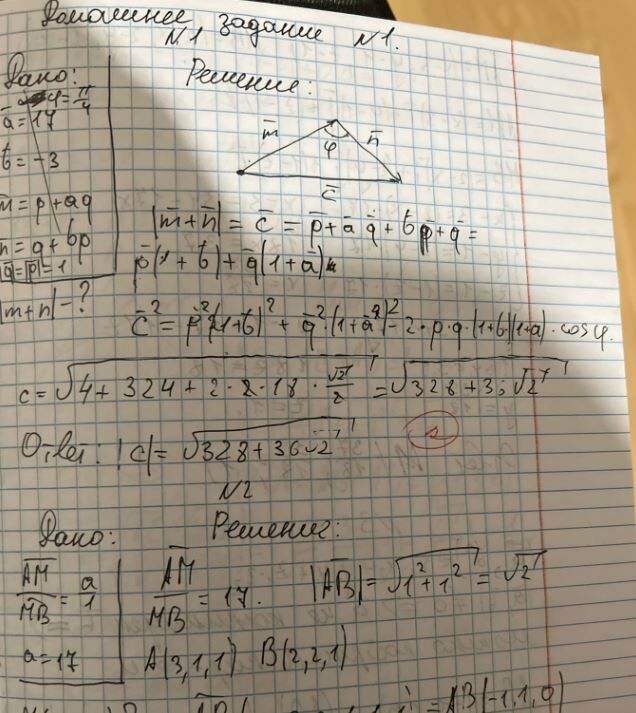 Домашнее задание N1.
N1
Дано:
φ = π/4
a = 17
b = -3
m = p + aq
n = q + bp
|q| = |p| = 1
|m+n| - ?
Решение:
m̄ φ n̄
c̄
|m̄+n̄| = c̄ = p̄ + a q̄ + b p̄ + q̄ =
p̄(1 + b) + q̄(1 + a)
c̄² = p̄²(1+b)² + q̄²·(1+a)² - 2·p·q·(1+b)(1+a)·cosφ.
c = √(4 + 324 + 2·2·18·√2/2) = √(328 + 36√2)
Ответ: |c| = √(328 + 36√2)
N2
Дано:
AM/MB = a/1
a = 17
Решение:
AM/MB = 17. |AB| = √(1² + 1²) = √2
A(3,1,1) B(2,2,1)
= AB(-1,1,0)